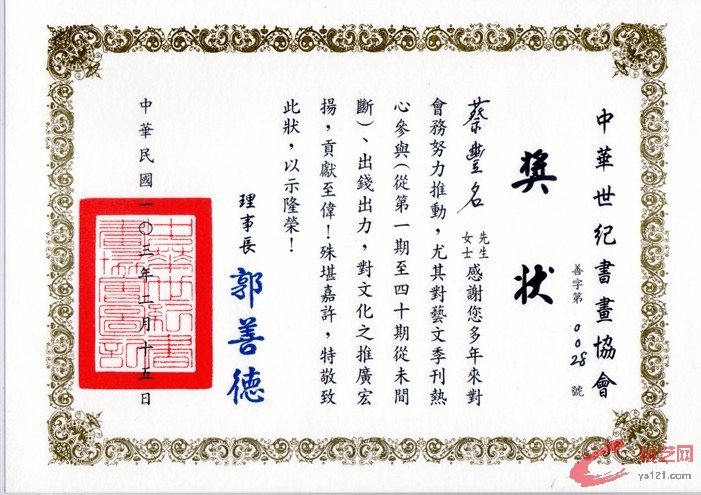 中華世紀書畫協會
善字第0028號
獎狀
蔡豐名 先生 女士 感謝您多年來對
會務努力推動，尤其對藝文季刊熱
心參與(從第一期至四十期從未間
斷)、出錢出力，對文化之推廣宏
揚，貢獻至偉！殊堪嘉許，特敬致
此狀，以示隆榮！
理事長 郭善德
中華民國一〇三年二月十五日
中華世紀書
畫協會圖記
ys121.com